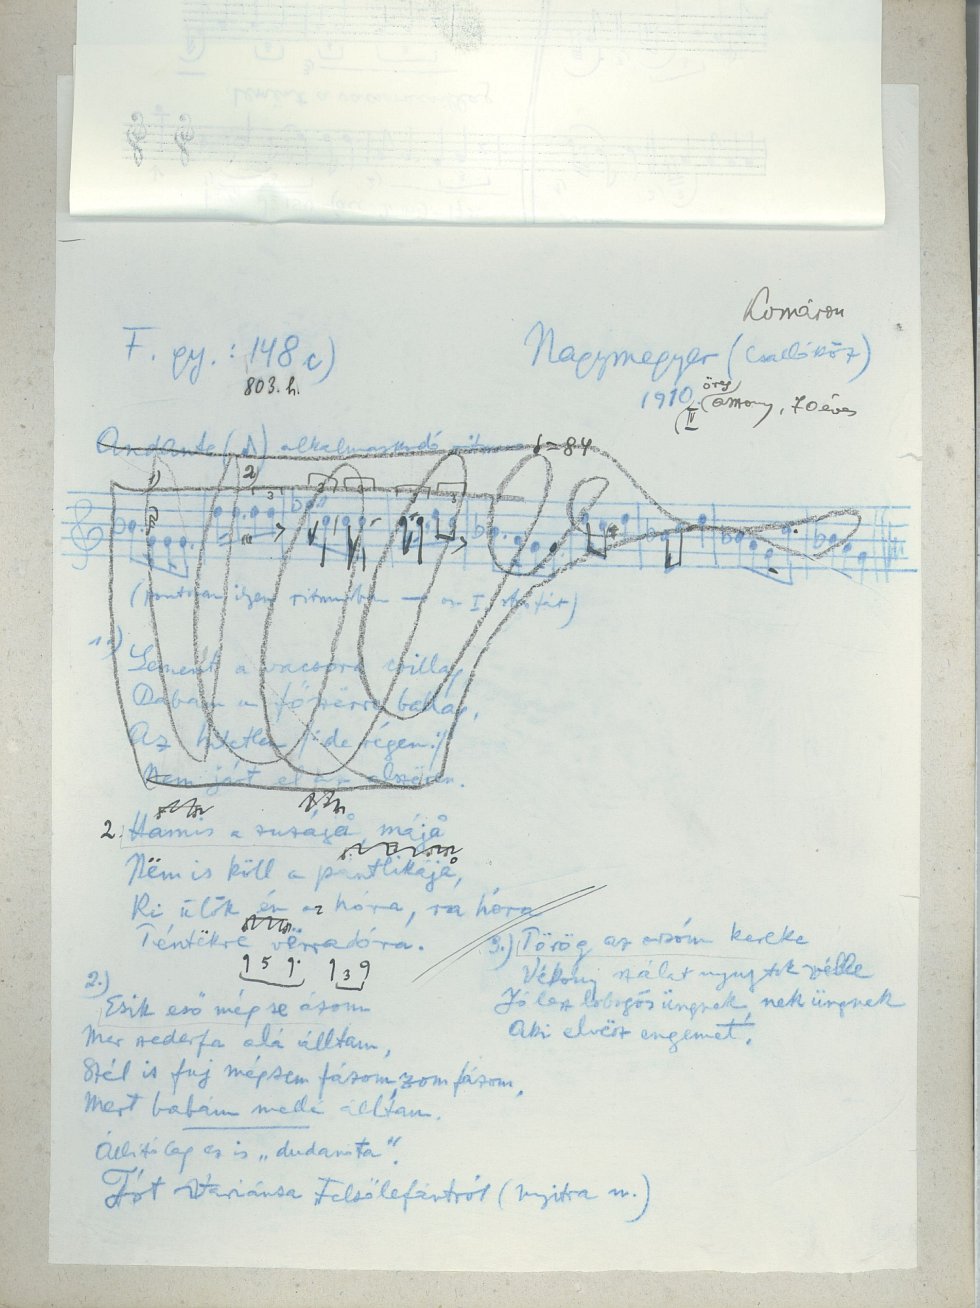 Komárom
F. gy.: 148 c)
803. h.
Nagymegyer (Csallóköz)
1910. II (öreg asszony, 70 éves
Andante (♪) alkalmazkodó ritmus ♩=84
(pontosan ilyen ritmusban — az I. strófát)
1.)
Lement a vacsora csillag,
Babám a
Az hitetlen /: de régen :/
Nem járt el
2. Hamis a rózsája, májå
Nëm is köll a pántlikájå,
Ki ülök én a hóra, ra hóra
vërradóra.
2.)
Esik eső mégse ázom
Mer szederfa alá álltam,
Szél is fuj mégsem fázom, zom fázom,
Mert babám mellé álltam.
3.) Törög az orsóm kereke
Vékony szálat nyujtok vélle
Jó lesz lobogós üngnek, nek üngnek
Aki elvësz engemet.
Állitólag ez is „dudanóta".
Tót variánsa Felsőlefántról (Nyitra m.)